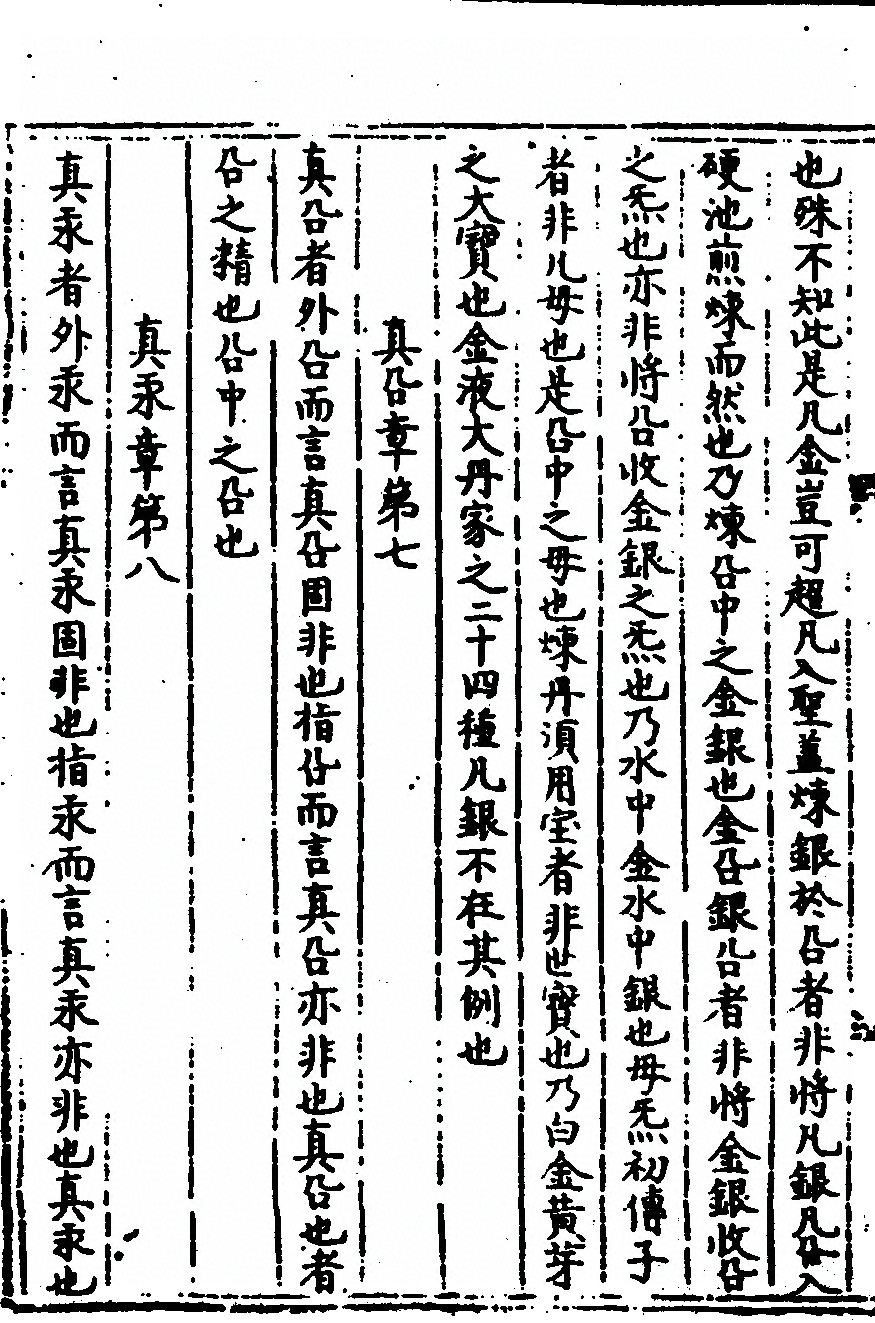 也殊不知此是凡金豈可超凡入聖盖煉銀於㕣者非將凡銀凡㕣入
硬池煎煉而然也乃煉㕣中之金銀也金㕣銀㕣者非將金銀收㕣
之炁也亦非將㕣收金銀之炁也乃水中金水中銀也母炁初傳子
者非凡母也是㕣中之母也煉丹湏用宝者非世寳也乃白金黄芽
之大寳也金液大丹家之二十四種凡銀不在其例也
真㕣章第七
真㕣者外㕣而言真㕣固非也指㕣而言真㕣亦非也真㕣也者
㕣之精也㕣中之㕣也
真汞章第八
真汞者外汞而言真汞固非也指汞而言真汞亦非也真汞也